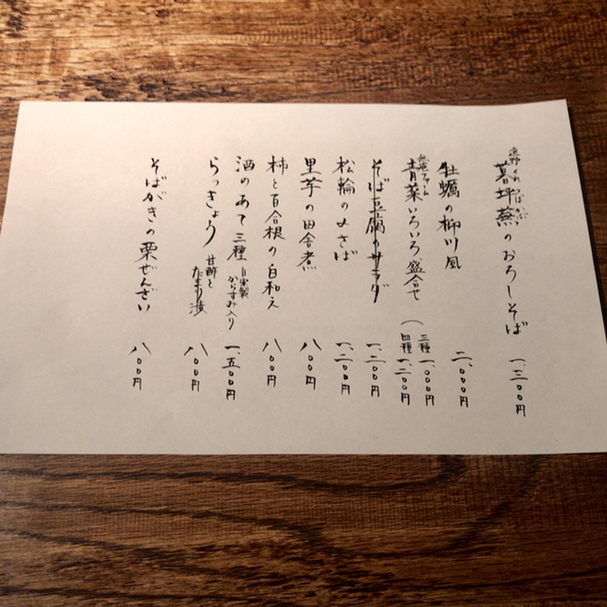 遠野 くれつぼかぶ
暮坪蕪のおろしそば 一、三〇〇円
牡蠣の柳川風 二、〇〇〇円
青菜いろいろ盛合せ ( 三種 一、〇〇〇円
四種 一、二〇〇円
そば豆腐のサラダ 一、二〇〇円
松輪の〆さば 一、二〇〇円
里芋の田舎煮 八〇〇円
柿と百合根の白和え 八〇〇円
酒のあて三種 自家製からすみ入り 一、五〇〇円
らっきょう 甘酢とたまり漬 八〇〇円
そばがきの栗ぜんざい 八〇〇円